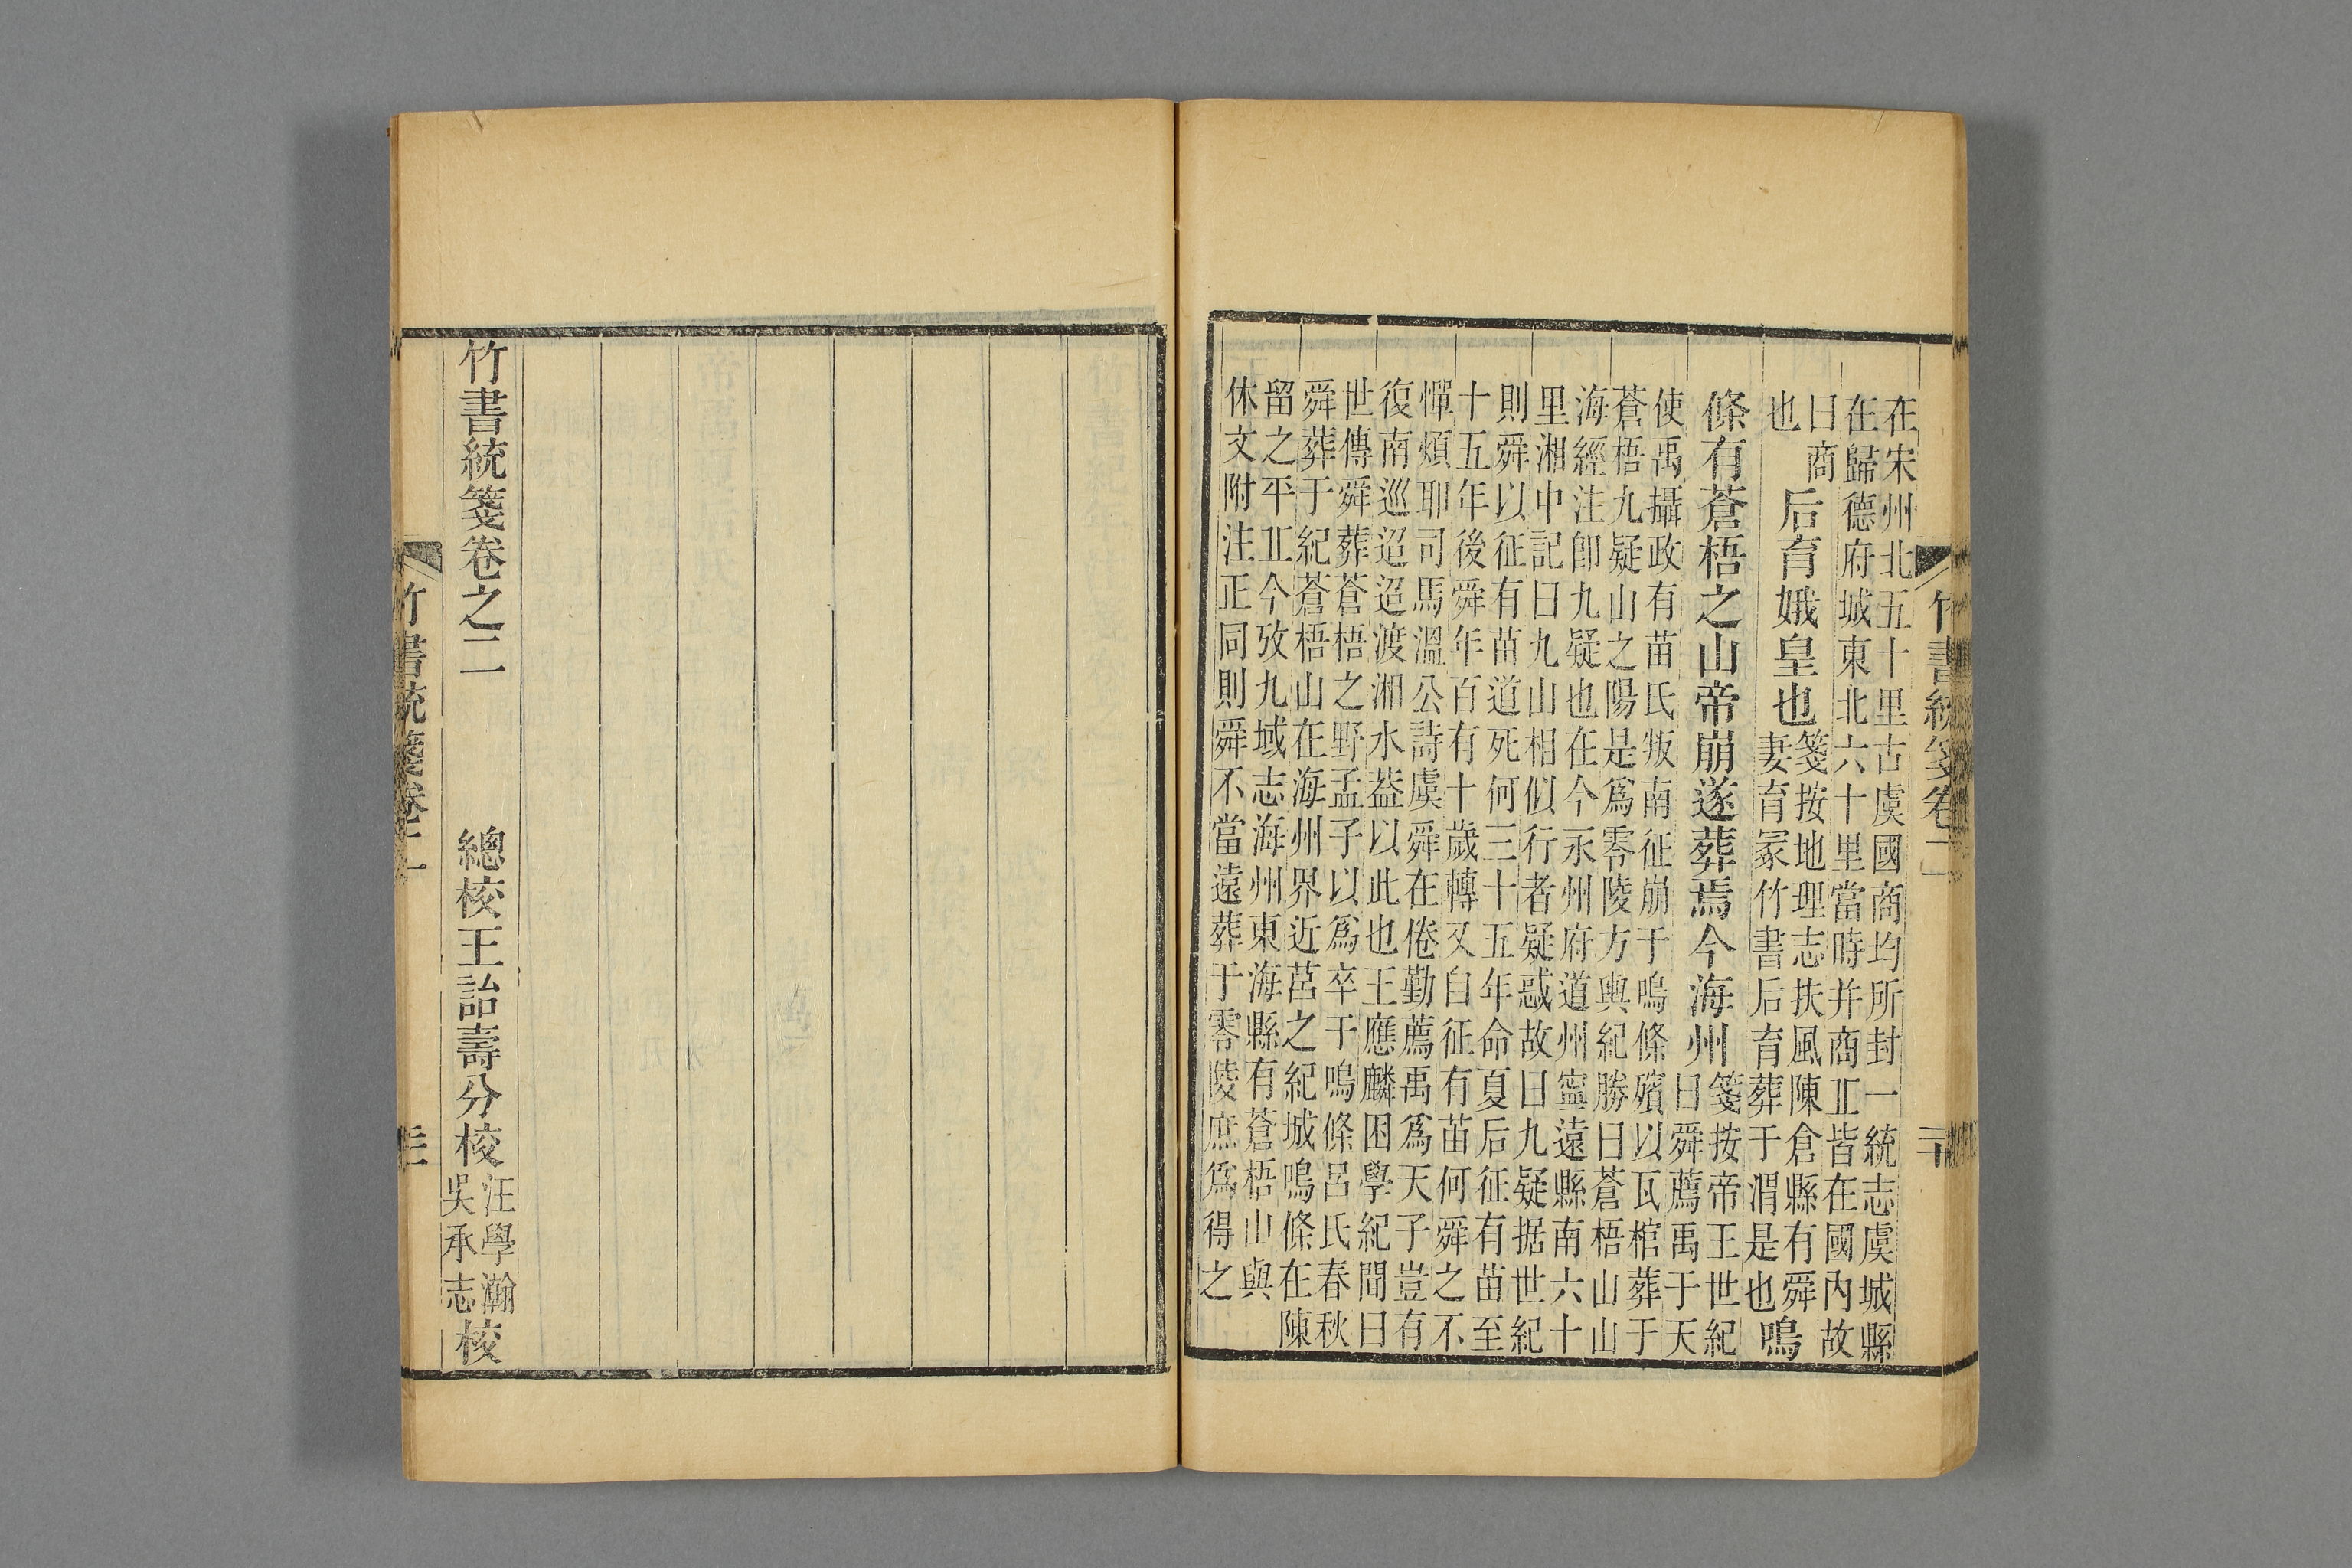 竹書統箋卷二
在宋州北五十里古虞國商均所封一統志虞城縣
在歸德府城東北六十里當時并商丘皆在國內故
曰商
也
后育娥皇也
箋按地理志扶風陳倉縣有舜
妻育冢竹書后育葬于渭是也
鳴
條有蒼梧之山帝崩遂葬焉今海州
箋按帝王世紀
曰舜薦禹于天
使禹攝政有苗氏叛南征崩于鳴條殯以瓦棺葬于
蒼梧九疑山之陽是爲零陵方輿紀勝曰蒼梧山山
海經注卽九疑也在今永州府道州寧遠縣南六十
里湘中記曰九山相似行者疑惑故曰九疑据世紀
則舜以征有苗道死何三十五年命夏后征有苗至
十五年後舜年百有十歲轉又自征有苗何舜之不
憚煩耶司馬溫公詩虞舜在倦勤薦禹爲天子豈有
復南巡迢迢渡湘水葢以此也王應麟困學紀聞曰
世傳舜葬蒼梧之野孟子以爲卒于鳴條呂氏春秋
舜葬于紀蒼梧山在海州界近莒之紀城鳴條在陳
留之平丘今攷九域志海州東海縣有蒼梧山與
休文附注正同則舜不當遠葬于零陵庶爲得之
竹書統箋卷之二
總校王詒壽分校
汪學瀚
吳承志
校
竹書統箋卷二